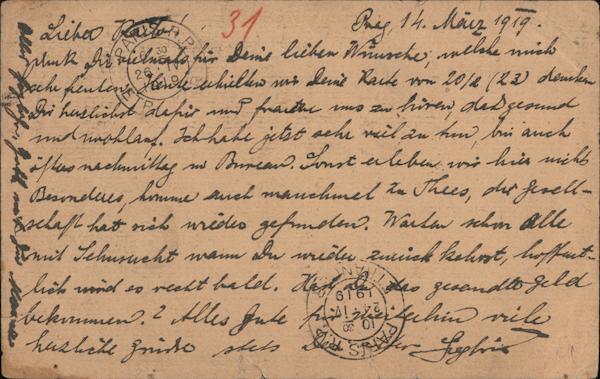 31
Prag, 14. März 1919.
Lieber
Dir vielmals für Deine lieben Wünsche, welche mich
sehr freuten. Heute erhielten wir Deine Karte von 20/2 (23) danken
Dir herzlichst dafür und freuen uns zu hören, daß gesund
und wohlauf. Ich habe jetzt sehr viel zu tun, bin auch
öfters nachmittag im Bureau. Sonst erleben wir hier nicht
Besonderes, komme auch manchmal zu Thees, der Gesell-
schaft hat sich wieder gefunden. Warten schon alle
mit Sehnsucht wann Du wieder zurückkehrst, hoffent-
lich wird es recht bald. Hast du das gesandte Geld
bekommen? Alles Gute viele
herzliche Grüße stets Dein
PARIS R.P.